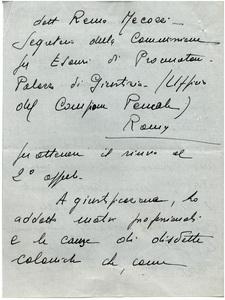 dott Remo Mecocci -
Segretario della Commissione
per Esami di Procuratore -
Palazzo di Giustizia - (Ufficio
del Campione Penale)
Roma
per ottenere il rinvio al
2° appello.
A giustificazione, ho
addotto motivi professionali
e le cause di disdette
coloniche che, come